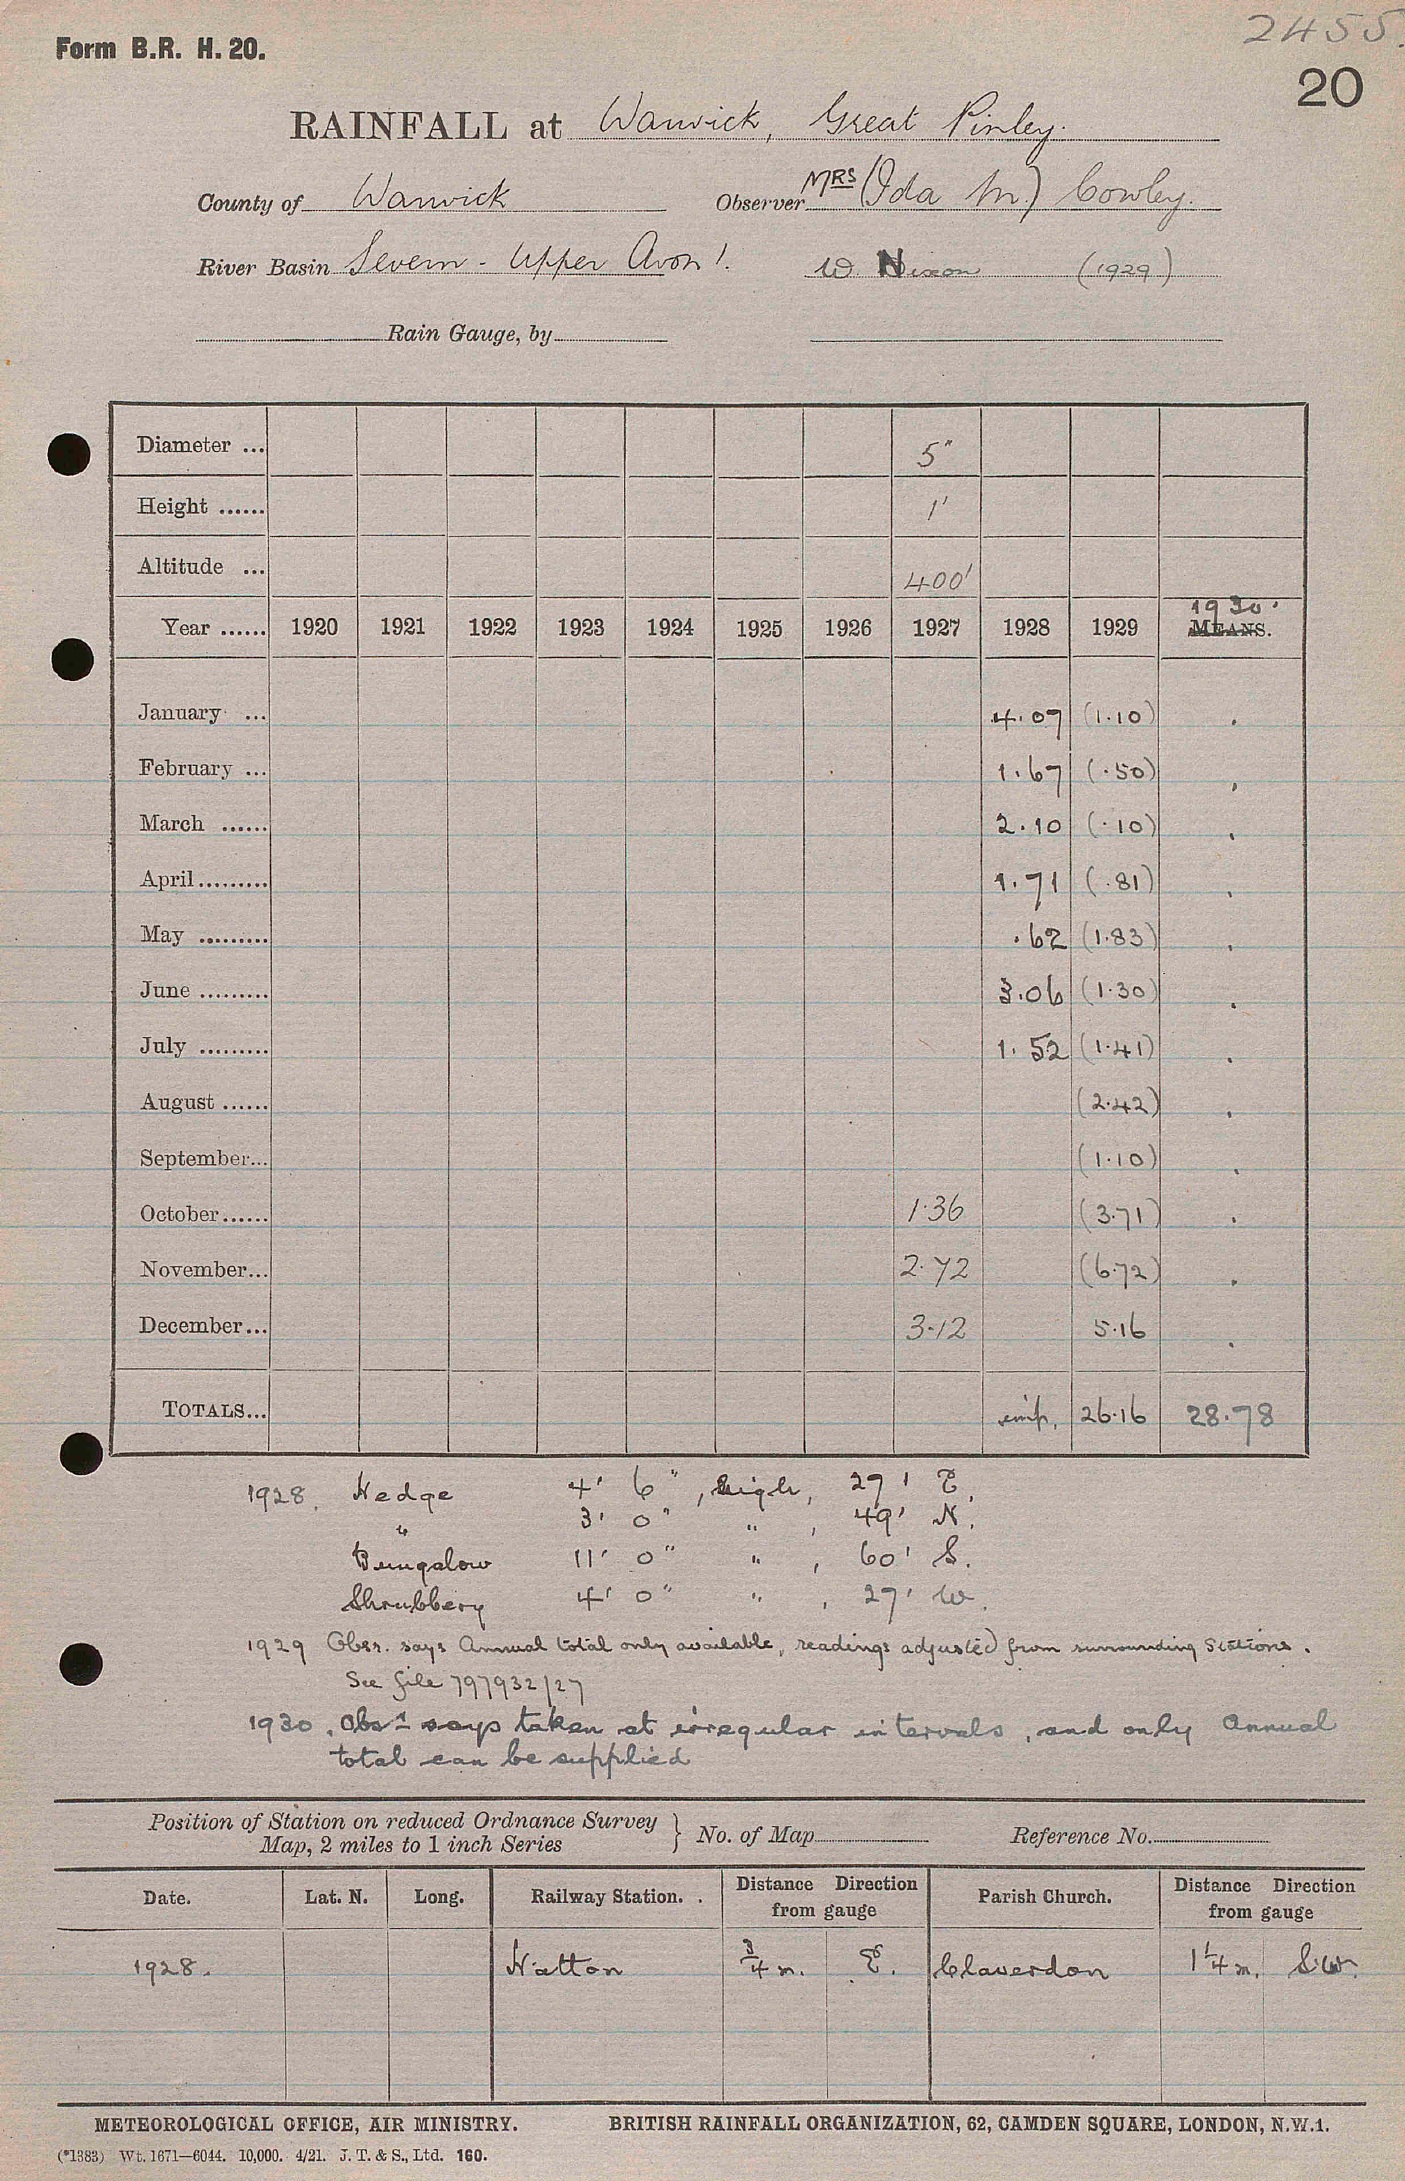 2455.
Form B.R. H. 20.
20
RAINFALL at Warwick, Great Pinley.
County of Warwick Observer MRS (Ida M.) Cowley.
River Basin Severn - Upper Avon 1. W Nixon (1929)
Rain Gauge, by
Diameter ... 5"
Height ...... 1'
Altitude ... 400'
1930.
Year ...... 1920 1921 1922 1923 1924 1925 1926 1927 1928 1929 MEANS.
January ... 4.07 (1.10) .
February ... 1.67 (.50) .
March ...... 2.10 (.10) .
April......... 1.71 (.81) .
May ......... .62 (1.83) .
June ......... 3.06 (1.30) .
July ......... 1.52 (1.41) .
August ...... (2.42) .
September... (1.10) .
October...... 1.36 (3.71) .
November... 2.72 (6.72) .
December... 3.12 5.16 .
TOTALS... imp. 26.16 28.78
1928. Hedge 4' 6" , high, 27' E.
" 3' 0" " , 49' N.
Bungalow 11' 0" " , 60' S.
Shrubbery 4' 0" " , 27' W.
1929 Obsr. says Annual total only available, readings adjusted from surrounding stations.
See file 797932/27
1930. Obsr says taken at irregular intervals, and only Annual
total can be supplied
Position of Station on reduced Ordnance Survey
Map, 2 miles to 1 inch Series } No. of Map Reference No.
Date. Lat. N. Long. Railway Station. . Distance Direction from gauge Parish Church. Distance Direction from gauge
1928. Hatton 3/4 m. E. Claverdon 1 1/4 m. S.W.
METEOROLOGICAL OFFICE, AIR MINISTRY. BRITISH RAINFALL ORGANIZATION, 62, CAMDEN SQUARE, LONDON, N.W.1.
(*1383) Wt. 1671—6044. 10,000. 4/21. J. T. & S., Ltd. 160.